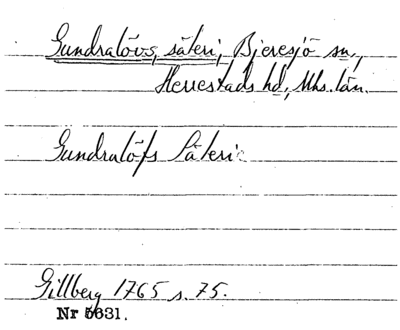 Gundralövs, säteri, Bjeresjö sn.,
Herrestads hd, Mhs. län.
Gundralöfs Säteri
Gillberg 1765 s. 75.
Nr 5631.